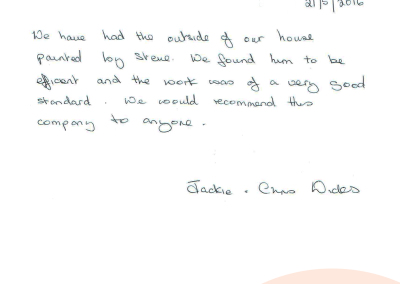 21/5/2016
We have had the outside of our house
painted by Steve. We found him to be
efficent and the work was of a very good
standard. We would recommend this
company to anyone.
Jackie + Chris